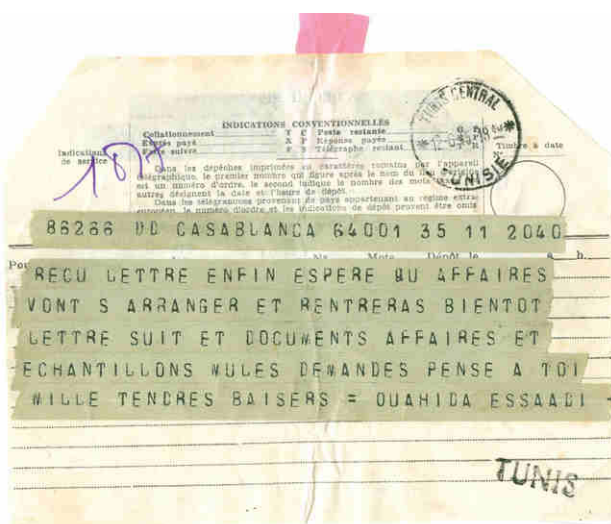 INDICATIONS CONVENTIONNELLES
Indications de service
Collationnement T C Poste restante
Exprès payé X P Réponse payée
Faire suivre F S Télégraphe restant
Timbre à date
Dans les dépêches imprimées en caractères romains par l'appareil
télégraphique, le premier nombre qui figure après le nom du lieu
est un numéro d'ordre, le second indique le nombre des mots
autres désignent la date et l'heure de dépôt.
Dans les télégrammes provenant de pays appartenant au régime extra
européen, le numéro d'ordre et les indications de dépôt peuvent être omis
TUNIS CENTRAL
TUNISIE
86266 DD CASABLANCA 64001 35 11 2040
RECU LETTRE ENFIN ESPERE QU AFFAIRES
VONT S ARRANGER ET RENTRERAS BIENTOT
LETTRE SUIT ET DOCUMENTS AFFAIRES ET
ECHANTILLONS MULES DEMANDES PENSE A TOI
MILLE TENDRES BAISERS = OUAHIDA ESSAADI -
TUNIS